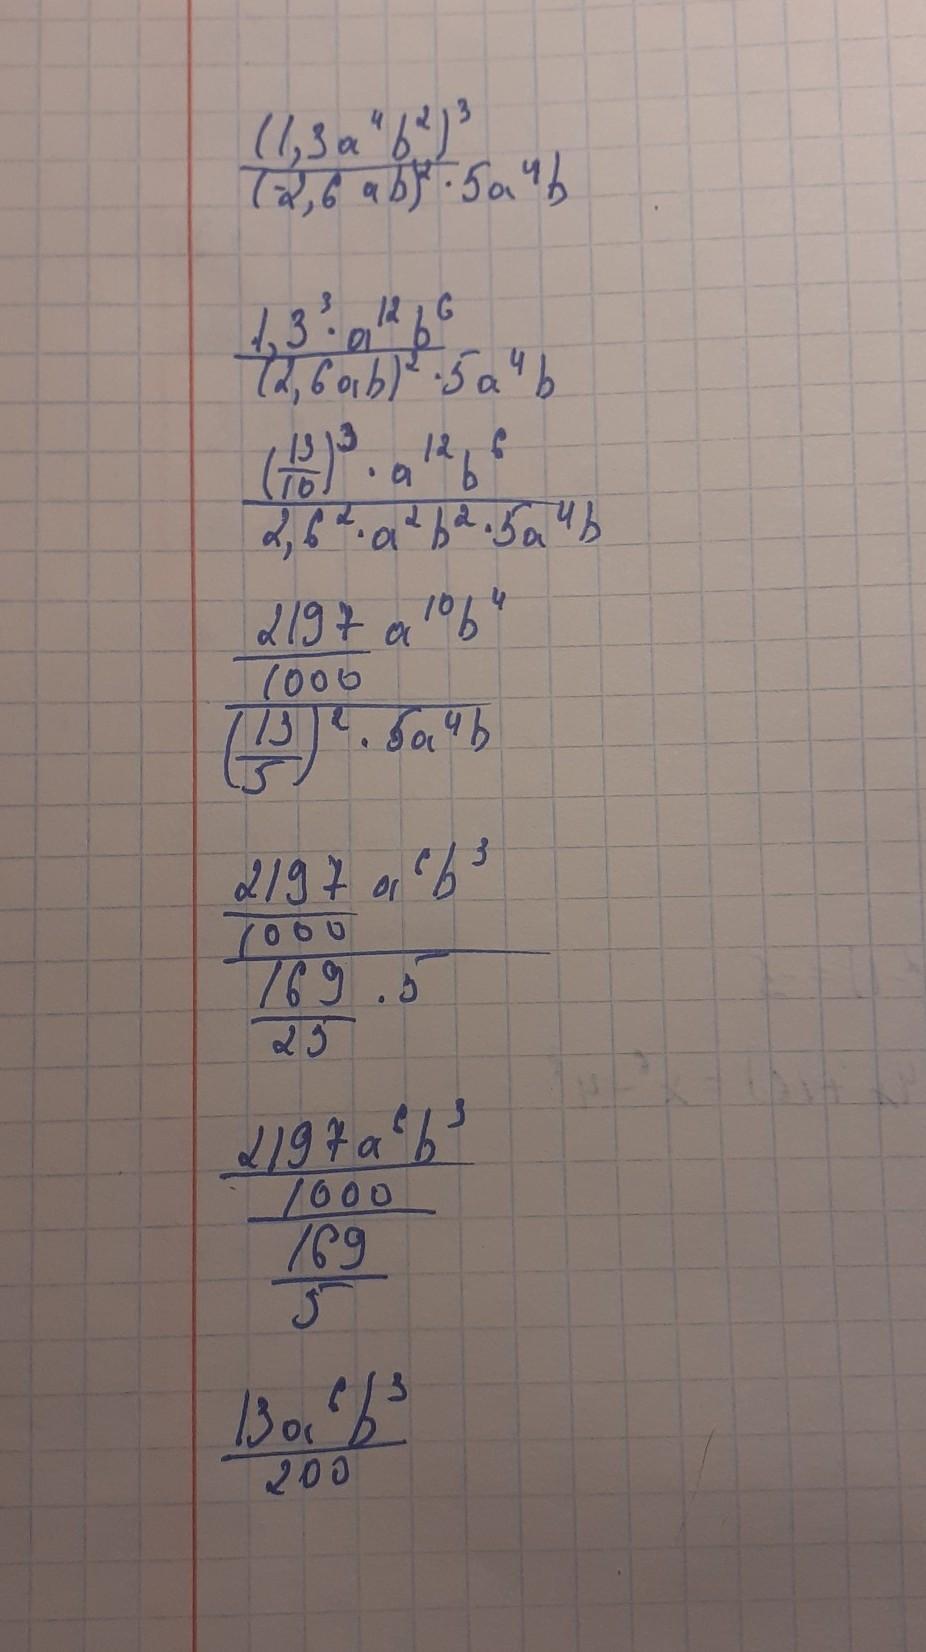 (1,3a⁴b²)³
(-2,6 ab)² · 5a⁴b
1,3³ · a¹²b⁶
(2,6ab)² · 5a⁴b
(13/10)³ · a¹²b⁶
2,6² · a²b² · 5a⁴b
2197 a¹⁰b⁴
1000
(13/5)² · 5a⁴b
2197 a⁶b³
1000
169 · 5
25
2197a⁶b³
1000
169
5
13a⁶b³
200